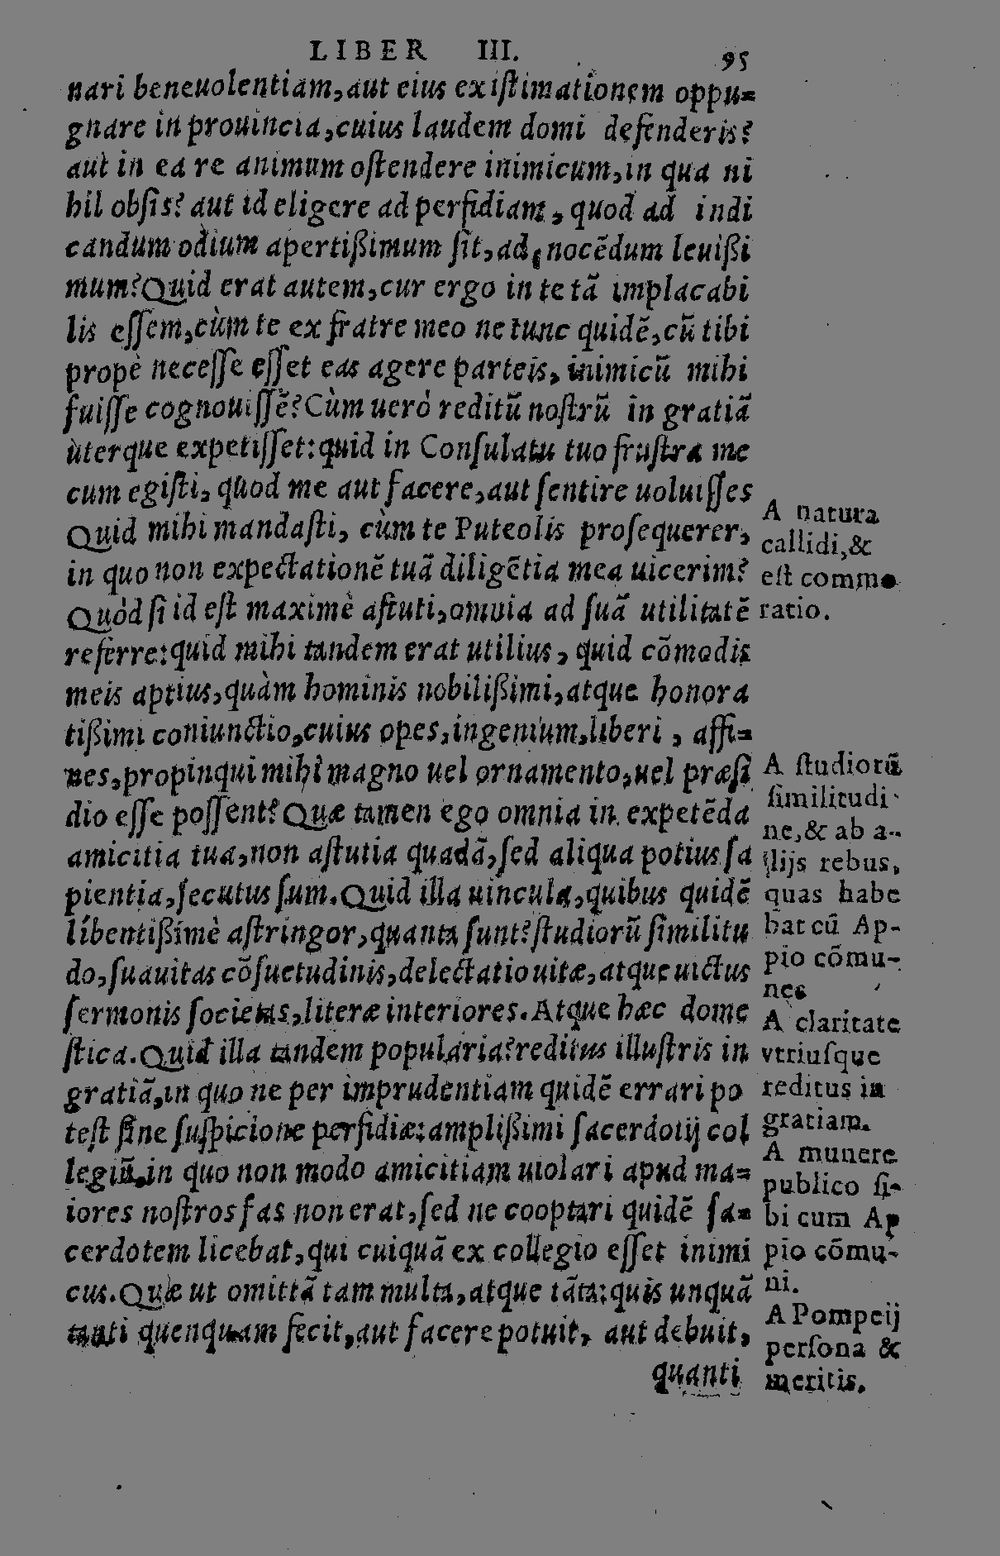 LIBER III. 95
nari beneuolentiam, aut eius existimationem oppu=
gnare in prouincia, cuius laudem domi defenderis?
aut in ea re animum ostendere inimicum, in qua ni
hil obsis? aut id eligere ad perfidiam, quod ad indi
candum odium apertißimum sit, ad nocẽdum leuißi
mum? Quid erat autem, cur ergo in te tã implacabi
lis essem, cùm te ex fratre meo ne tunc quidẽ, cũ tibi
propè necesse esset eas agere parteis, inimicũ mihi
fuisse cognouissẽ? Cùm uerò reditũ nostrũ in gratiã
uterque expetisset: quid in Consulatu tuo frustra me
cum egisti, quod me aut facere, aut sentire uoluisses
Quid mihi mandasti, cùm te Puteolis prosequerer,
in quo non expectationẽ tuã diligẽtia mea uicerim?
Quòd si id est maximè astuti, omnia ad suã utilitatẽ
referre: quid mihi tandem erat utilius, quid cõmodis
meis aptius, quàm hominis nobilißimi, atque honora
tißimi coniunctio, cuius opes, ingenium, liberi, affi=
nes, propinqui mihi magno uel ornamento, uel præsi
dio esse possent? Quæ tamen ego omnia in expetẽda
amicitia tua, non astutia quadã, sed aliqua potius sa
pientia, secutus sum. Quid illa uincula, quibus quidẽ
libentißimè astringor, quanta sunt? studiorũ similitu
do, suauitas cõsuetudinis, delectatio uitæ, atque uictus
sermonis societas, literæ interiores. Atque hæc dome
stica. Quid illa tandem popularia? reditus illustris in
gratiã, in quo ne per imprudentiam quidẽ errari po
test sine suspicione perfidiæ: amplißimi sacerdotij col
legiũ, in quo non modo amicitiam uiolari apud ma=
iores nostros fas non erat, sed ne cooptari quidẽ sa=
cerdotem licebat, qui cuiquã ex collegio esset inimi
cus. Quæ ut omittã tam multa, atque tãta: quis unquã
tanti quenquam fecit, aut facere potuit, aut debuit,
quanti
A natura
callidi, &
est commo
ratio.
A studiorũ
similitudi
ne, & ab a-
lijs rebus,
quas habe
bat cũ Ap-
pio cõmu-
nes
A claritate
vtriusque
reditus in
gratiam.
A munere
publico si-
bi cum Ap
pio cõmu-
ni.
A Pompeij
persona &
meritis.